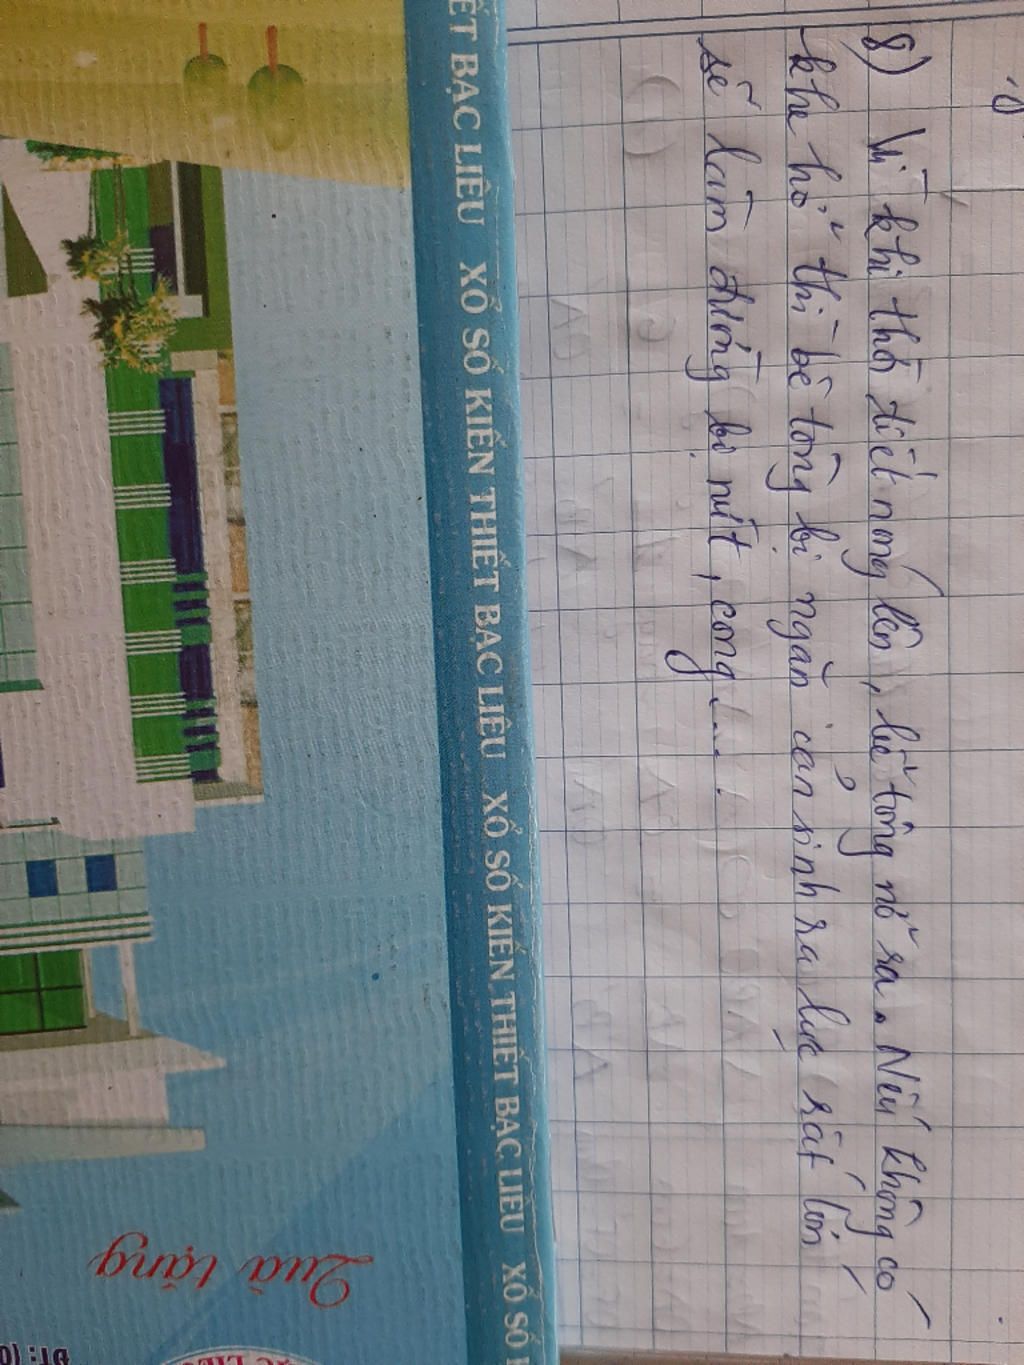 8) Vì khi thời tiết nóng lên, bê tông nở ra. Nếu không có
khe hở thì bê tông bị ngăn cản sinh ra lực rất lớn
sẽ làm đường bị nứt, cong....
ẾT BẠC LIÊU XỔ SỐ KIẾN THIẾT BẠC LIÊU XỔ SỐ KIẾN THIẾT BẠC LIÊU XỔ SỐ
Quà tặng
ĐT: (0